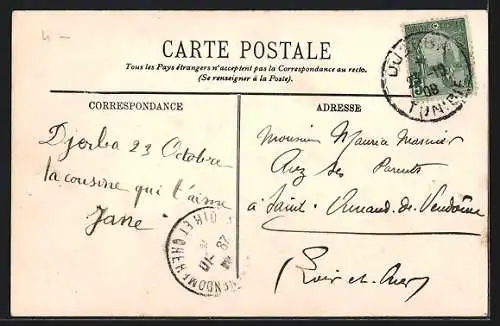 4 -
CARTE POSTALE
Tous les Pays étrangers n'acceptent pas la Correspondance au recto.
(Se renseigner à la Poste).
CORRESPONDANCE
ADRESSE
Djerba 23 Octobre
la cousine qui t'aime
Jane
Monsieur Maurice
Chez Ses Parents
à Saint-Amand-de-Vendôme
(Loir-et-Cher)
DJERBA
23 - 10
08
TUNISIE
VENDOME
LOIR ET CHER
28 - 10